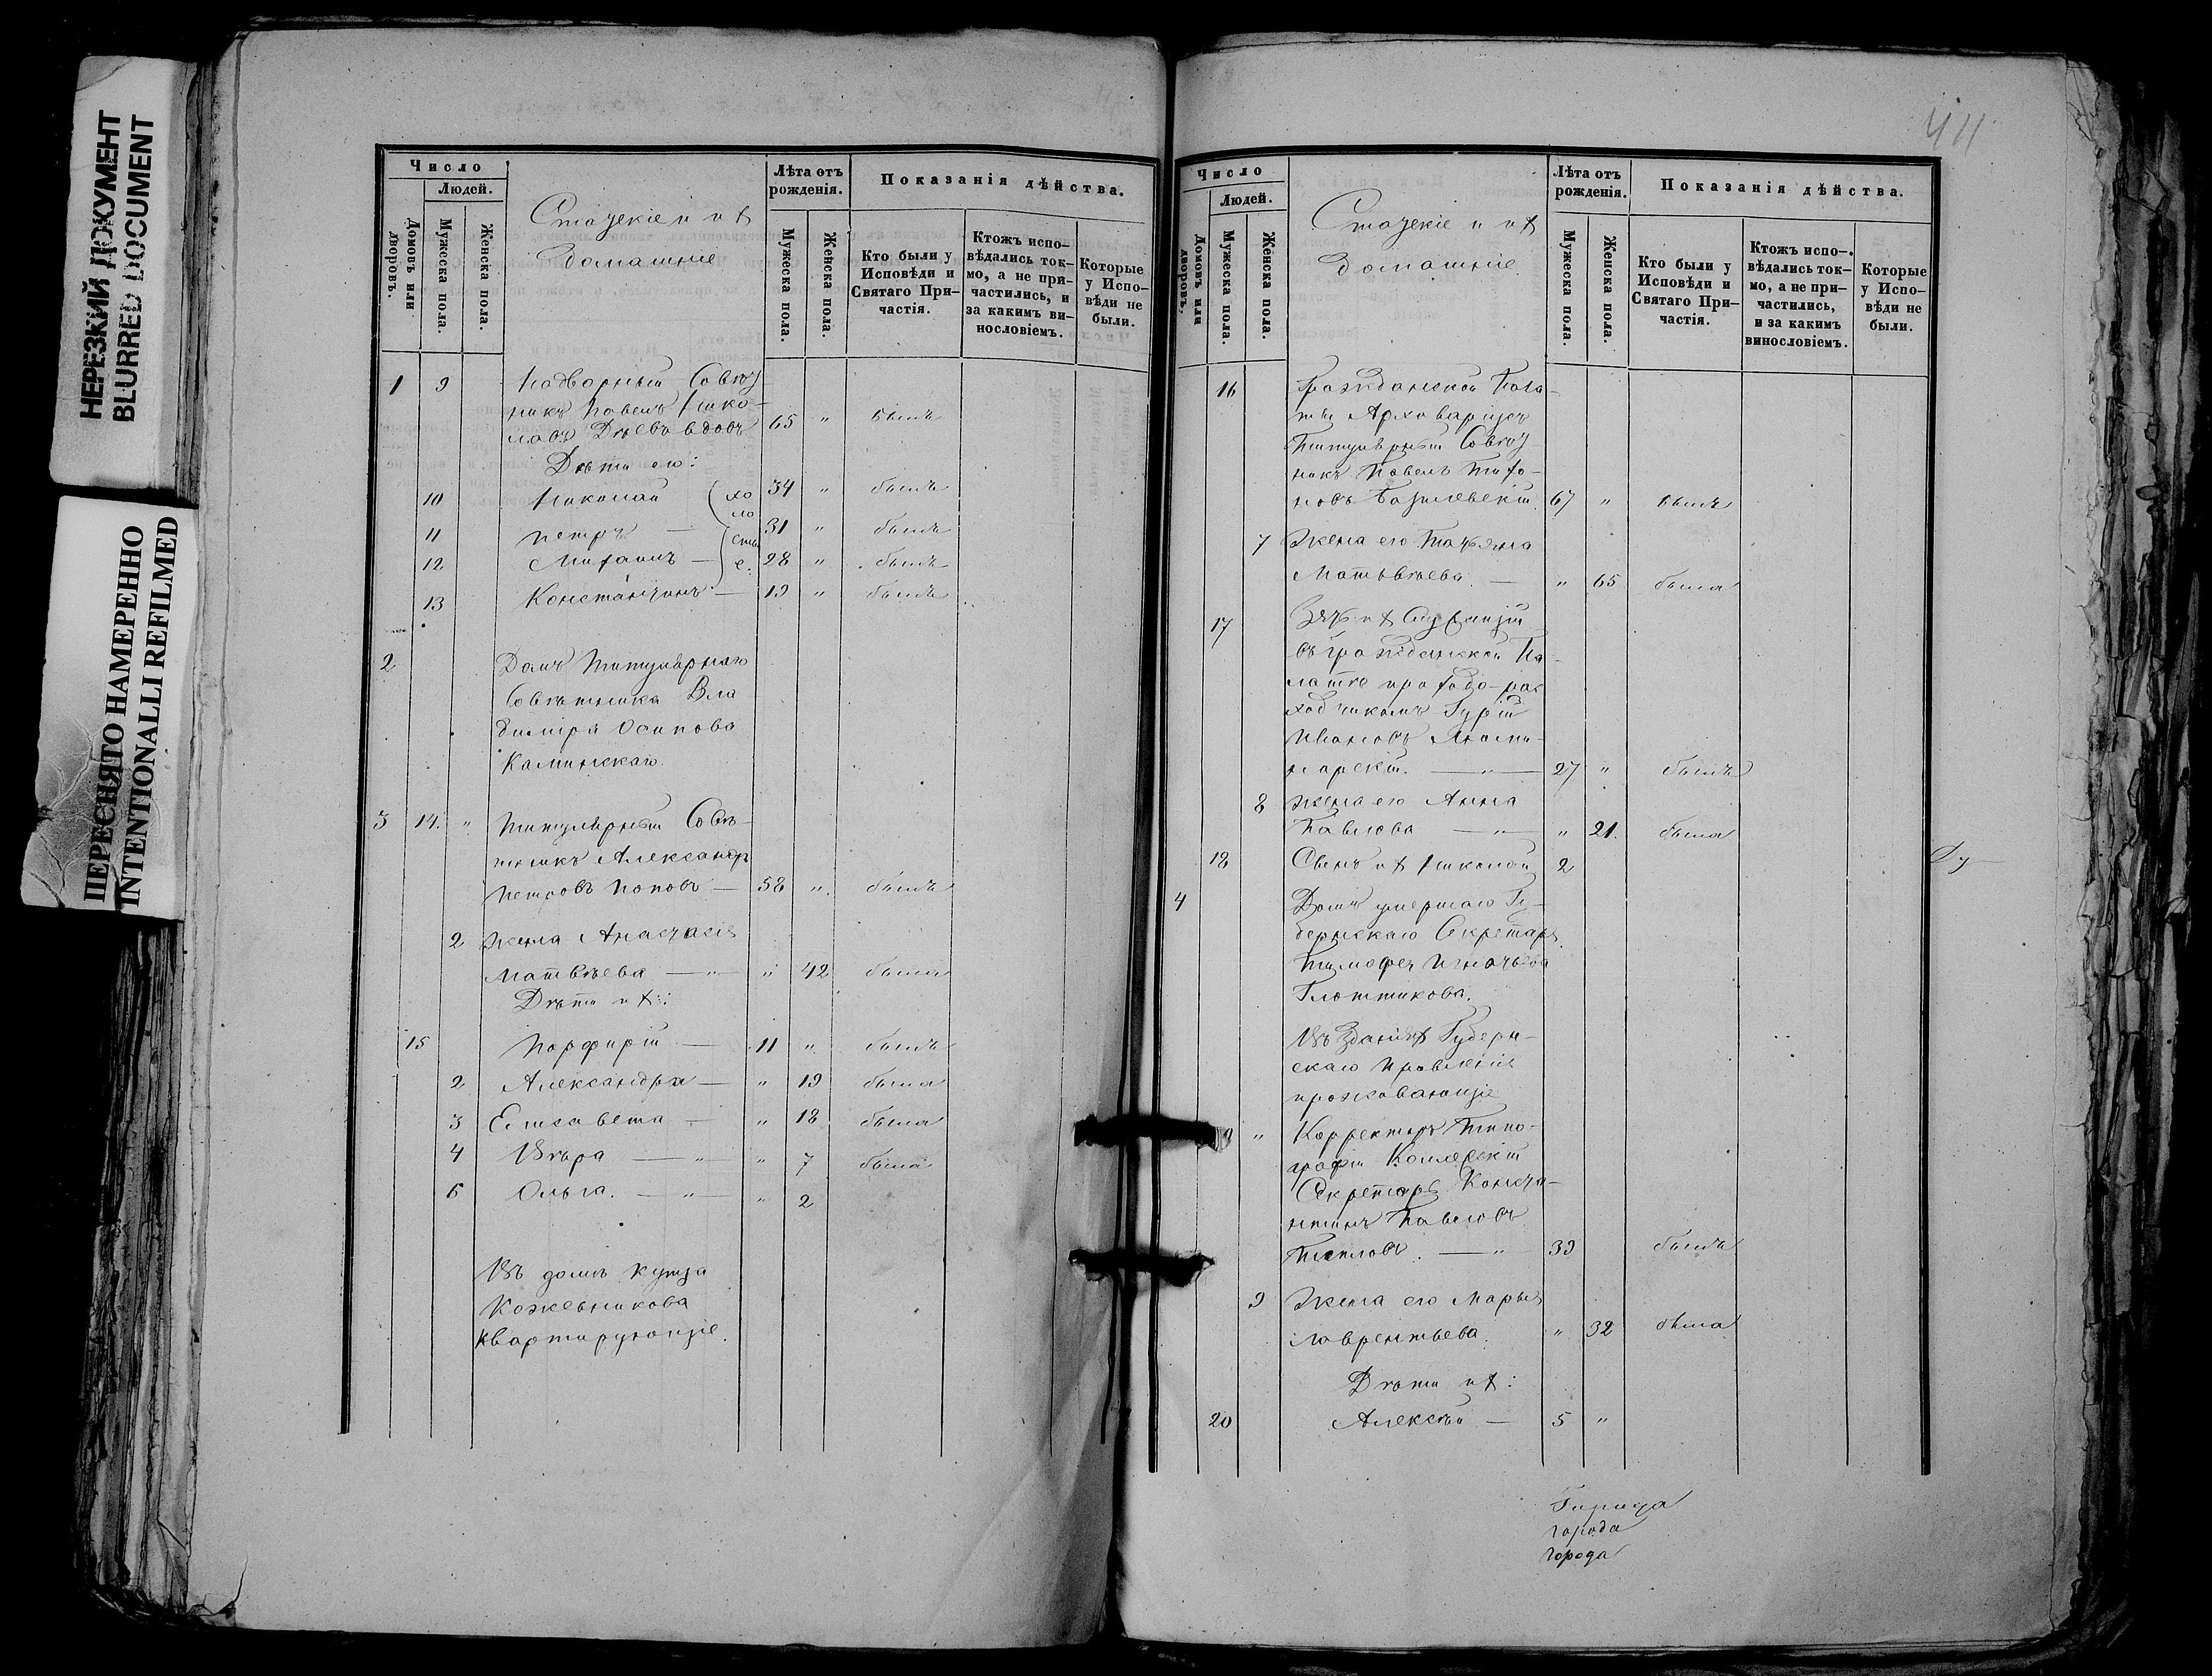 НЕРЕЗКИЙ ДОКУМЕНТ
BLURRED DOCUMENT
ПЕРЕСНЯТО НАМЕРЕННО
INTENTIONALLI REFILMED
Число
Людей.
Домовъ или дворовъ.
Мужеска пола.
Женска пола.
Статскіе и ихъ
домашніе
Лѣта отъ рожденія.
Мужеска пола.
Женска пола.
Показанія дѣйства.
Кто были у Исповѣди и Святаго При-частія.
Ктожъ испо-вѣдались ток-мо, а не при-частились, и за какимъ ви-нословіемъ.
Которые у Испо-вѣди не были.
1 9 Надворный Совѣт
никъ Павелъ Нико-
лаевъ вдовъ 65 " былъ
Дѣти его:
10 Николай 34 " былъ
11 Петръ — 31 " былъ
12 Михаилъ — 28 " былъ
13 Константинъ — 19 " былъ
холостые:
2 Домъ Титулярнаго
Совѣтника Вла
диміра Осипова
Каминскаго.
3 14. " Титулярный Совѣ-
тникъ Александръ
Петровъ Поповъ — 58 " былъ
2 Жена Анастасія
Матвѣева — " — " 42 была
Дѣти ихъ:
15 Порфирій — 11 " былъ
2 Александра — " 19 была
3 Елисавета — " 18 была
4 Вѣра — " — " 7 была
5 Ольга. — " " 2
Въ домѣ купца
Кожевникова
квартирующіе.
411
Число
Людей.
Домовъ или дворовъ.
Мужеска пола.
Женска пола.
Статскіе и ихъ
домашніе.
Лѣта отъ рожденія.
Мужеска пола.
Женска пола.
Показанія дѣйства.
Кто были у Исповѣди и Святаго При-частія.
Ктожъ испо-вѣдались ток-мо, а не при-частились, и за какимъ винословіемъ.
Которые у Испо-вѣди не были.
16 Гражданской Пала-
ты Архиваріусъ
Титулярный Совѣт
никъ Павелъ Тихо-
новъ Базилевскій. 67 " былъ
7 Жена его Татьяна
Матвѣева. — " 65 была
17 Зять ихъ служащій
въ Гражданской Па-
латѣ приходо-рас
ходчикомъ Гурій
Ивановъ
27 " былъ
8 Жена его Анна
Павлова — " — " 21. была
18 Сынъ ихъ Николай 2
4 Домъ умершаго Гу-
бернскаго Секретаря
Тимофея Игнатьева
Плотникова.
Въ зданіяхъ Губерн-
скаго Правленія
проживающіе
" Корректоръ Типо-
графіи Коллежскій
Секретарь Конста-
нтинъ Павловъ
Тепловъ. — " — 39 былъ
9 Жена его Марья
Лаврентьева. " 32 была
Дѣти ихъ:
20 Алексѣй — 5 "
города
города